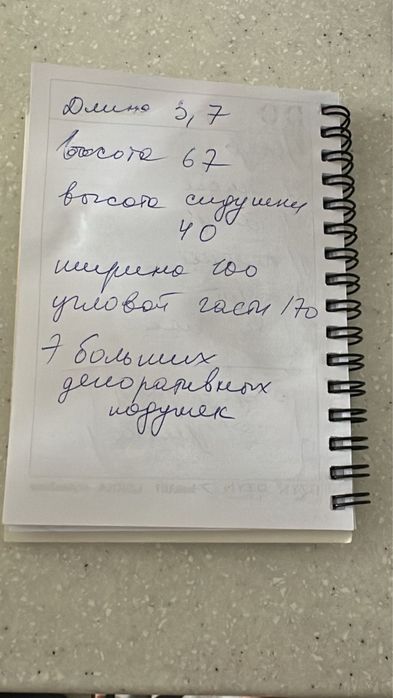 Длина 3,7
Высота 67
высота сидушки
40
ширина 100
угловой части 170
7 больших
декоративных
подушек